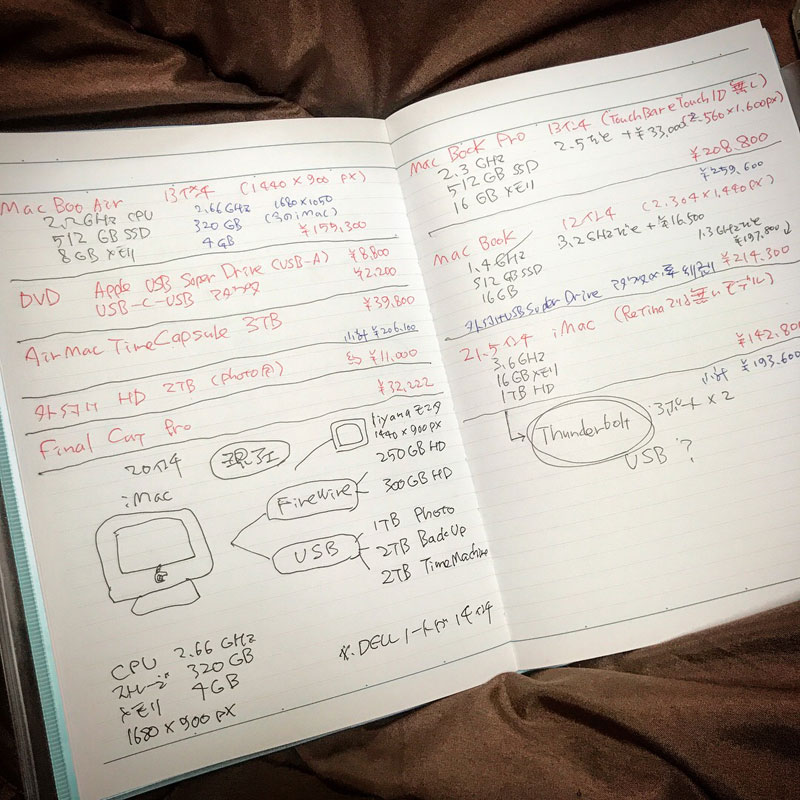 Mac Boo Air 13インチ (1440×900 px)
2.2GHz CPU 2.66GHz 1680×1050
512 GB SSD 320 GB (今のiMac)
8 GB メモリ 4GB ¥155,300
DVD Apple USB Super Drive (USB-A) ¥8,800
USB-C-USB アダプタ ¥2,200
AirMac TimeCapsule 3TB ¥39,800
小計 ¥206,100
外付け HD 2TB (Photo用) 約 ¥11,000
Final Cut Pro ¥32,222
20インチ 現在
iMac
iiyamaモニタ
1440×900px
FireWire
250GB HD
300GB HD
USB
1TB Photo
2TB BackUp
2TB TimeMachine
CPU 2.66 GHz
ストレージ 320 GB
メモリ 4GB
1680×900 px
※.DELL ノートが 14インチ
Mac Book Pro 13インチ (TouchBarとTouchID 無し)
2.3 GHz 2.5にすると +¥33,000 (2.560×1.600px)
512 GB SSD
16 GB メモリ ¥208,800
¥259,600
Mac Book 12インチ (2.304×1,440px)
1.4GHz 3.2GHzにすると +¥16,500
512 GB SSD 1.3GHzにすると
16GB ¥197,800↓
¥214,300
外付けUSB Super Drive アダプタ
21.5インチ iMac (Retinaでは無いモデル)
3.6GHz
16GBメモリ
1TB HD ¥142,800
小計 ¥193,600
Thunderbolt 3ポート×2
USB ?